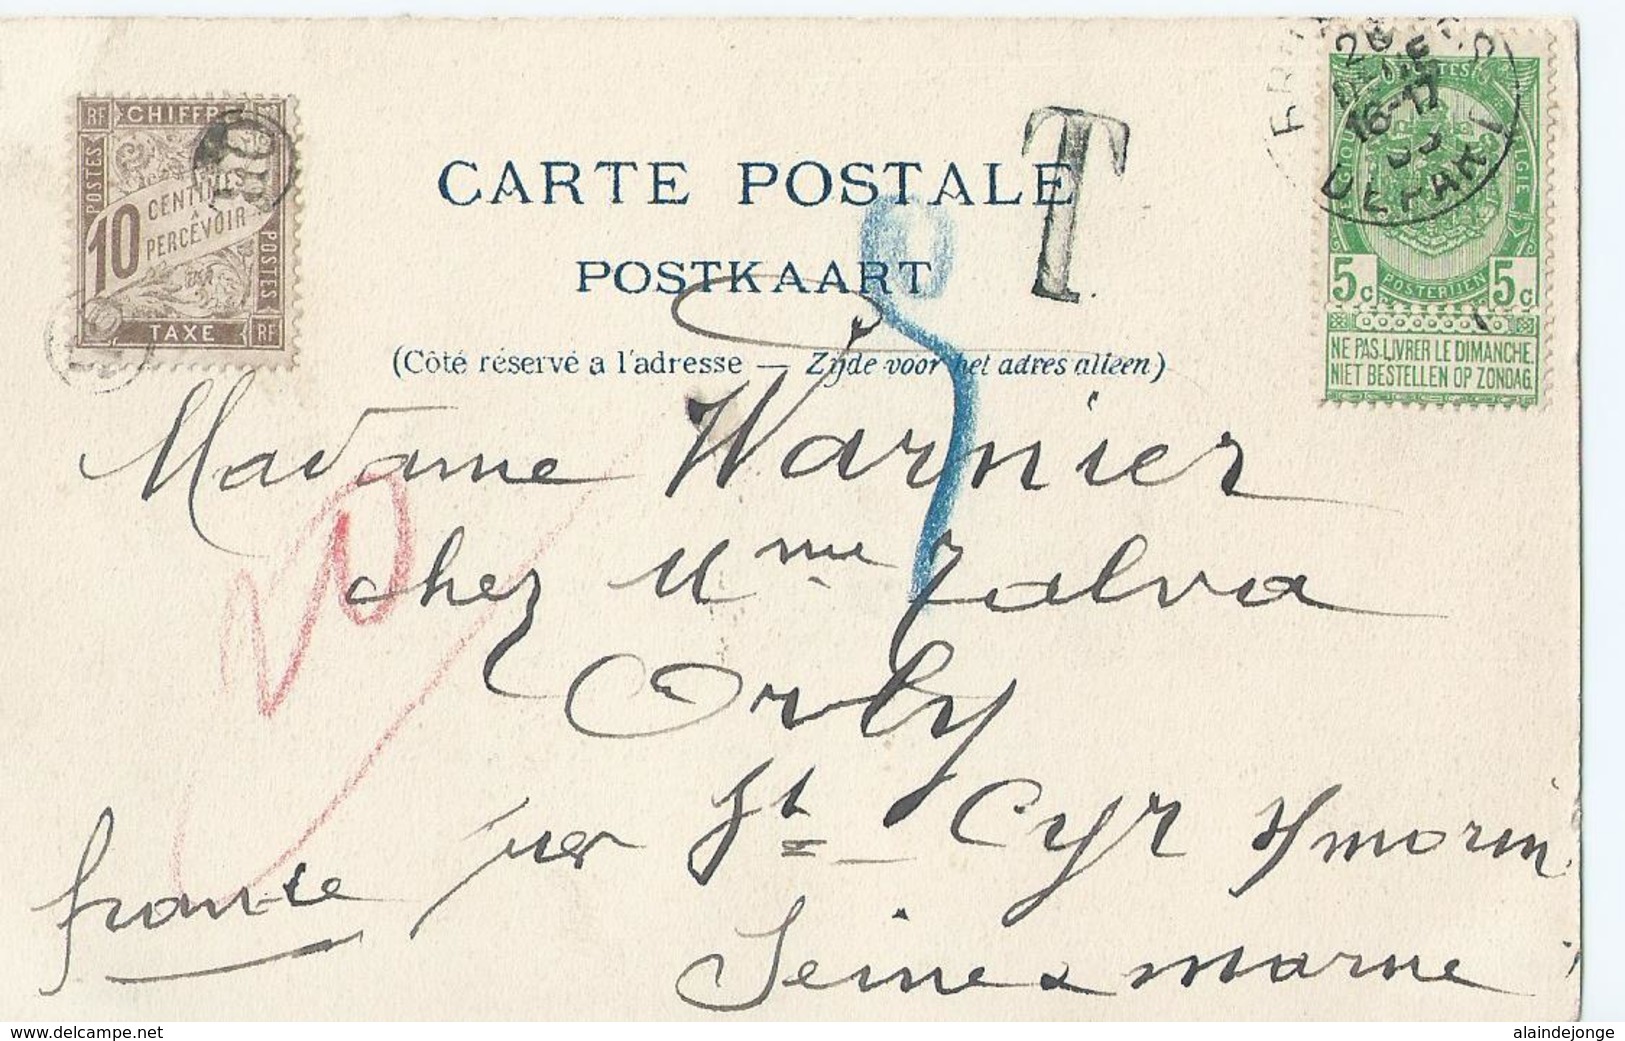 RF CHIFFRE
POSTES
10 CENTIMES
À
PERCEVOIR
POSTES
TAXE RF
T
CARTE POSTALE
POSTKAART
(Côté réservé a l'adresse — Zijde voor het adres alleen)
16-17
DEPART
5c POSTERIJEN 5c
NE PAS LIVRER LE DIMANCHE.
NIET BESTELLEN OP ZONDAG.
Madame Warnier
chez Mme Zalva
Orly
par St Cyr s/morin
Seine & marne
france
www.delcampe.net
alaindejonge